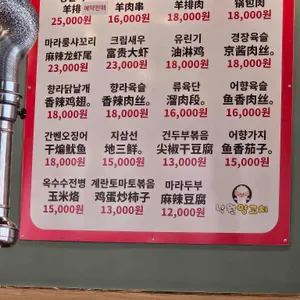 羊排 예약판매 羊肉串 羊排肉 锅包肉
25,000원 16,000원 18,000원 18,000원
마라룽샤꼬리 크림새우 유린기 경장육슬
麻辣龙虾尾 富贵大虾 油淋鸡 京酱肉丝。
23,000원 23,000원 18,000원 18,000원
향라닭날개 향라육슬 류육단 어향육슬
香辣鸡翅。 香辣肉丝。 溜肉段。 鱼香肉丝。
18,000원 18,000원 16,000원 16,000원
간삔오징어 지삼선 건두부볶음 어향가지
干煸鱿鱼 地三鲜。 尖椒干豆腐 鱼香茄子。
18,000원 15,000원 13,000원 15,000원
옥수수전병 계란토마토볶음 마라두부
玉米烙 鸡蛋炒柿子 麻辣豆腐
15,000원 13,000원 12,000원
낙원양꼬치